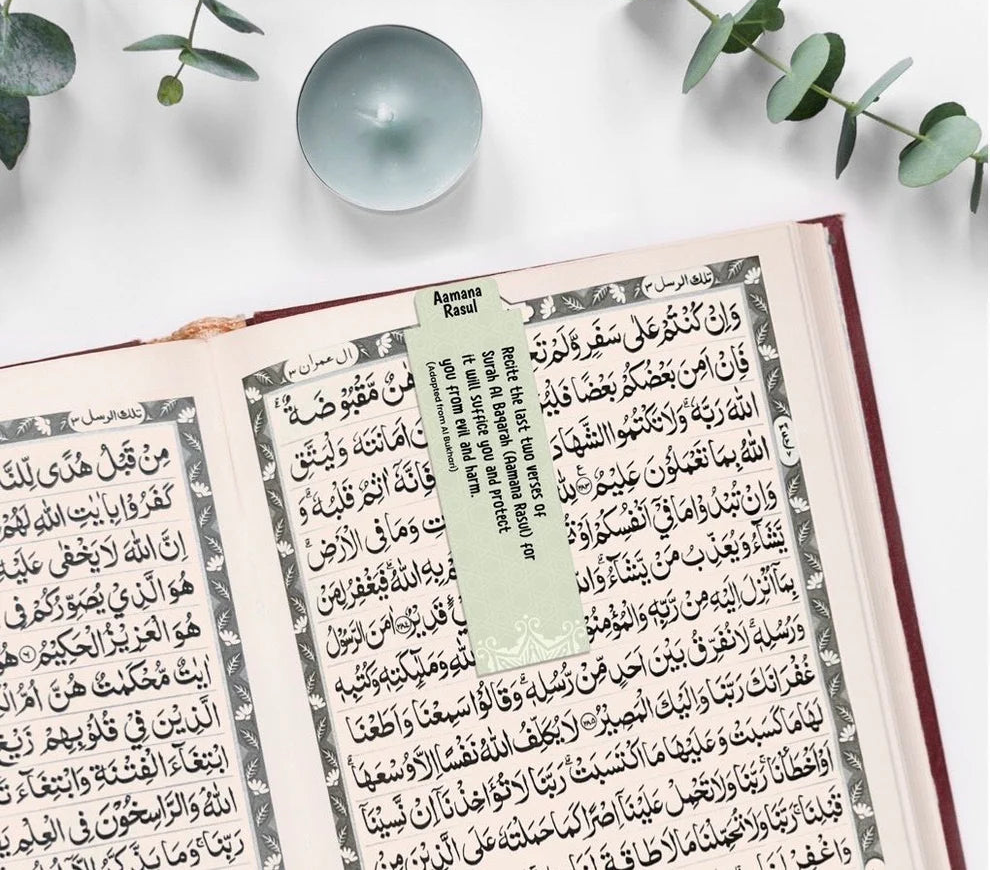 Aamana
Rasul
Recite the last two verses of
Surah Al Baqarah (Aamana Rasul) for
it will suffice you and protect
you from evil and harm.
(Adapted from Al Bukhari)
تلك الرسل ٣
ال عمران ٣
وَاِنْ كُنْتُمْ عَلٰى سَفَرٍ وَّلَمْ
مَّقْبُوْضَةٌ
فَاِنْ اَمِنَ بَعْضُكُمْ بَعْضًا
اَمَانَتَهٗ وَلْيَتَّقِ
اللّٰهَ رَبَّهٗ وَلَا تَكْتُمُوا
فَاِنَّهٗ اٰثِمٌ قَلْبُهٗ وَ
اللّٰهُ بِمَا تَعْمَلُوْنَ عَلِيْمٌ
وَمَا فِى الْاَرْضِ
وَاِنْ تُبْدُوْا مَا فِيْ اَنْفُسِكُمْ
بِهِ اللّٰهُ فَيَغْفِرُ لِمَنْ
يَّشَآءُ وَيُعَذِّبُ مَنْ يَّشَآءُ
قَدِيْرٌ ٢٨٤ اٰمَنَ الرَّسُوْلُ
بِمَآ اُنْزِلَ اِلَيْهِ مِنْ رَّبِّهٖ وَالْمُؤْمِنُوْنَ
وَمَلٰٓئِكَتِهٖ وَكُتُبِهٖ
وَرُسُلِهٖ لَا نُفَرِّقُ بَيْنَ اَحَدٍ مِّنْ رُّسُلِهٖ وَقَالُوْا سَمِعْنَا وَاَطَعْنَا
غُفْرَانَكَ رَبَّنَا وَاِلَيْكَ الْمَصِيْرُ ٢٨٥ لَا يُكَلِّفُ اللّٰهُ نَفْسًا اِلَّا وُسْعَهَا
لَهَا مَا كَسَبَتْ وَعَلَيْهَا مَا اكْتَسَبَتْ رَبَّنَا لَا تُؤَاخِذْنَآ اِنْ نَّسِيْنَآ
اَوْ اَخْطَاْنَا رَبَّنَا وَلَا تَحْمِلْ عَلَيْنَآ اِصْرًا كَمَا حَمَلْتَهٗ عَلَى الَّذِيْنَ مِنْ
قَبْلِنَا رَبَّنَا وَلَا تُحَمِّلْنَا مَا لَا طَاقَةَ لَنَا
وَاغْفِرْ لَنَا
تلك الرسل ٣
مِنْ قَبْلُ هُدًى لِّلنَّا
كَفَرُوْا بِاٰيٰتِ اللّٰهِ لَهُمْ
اِنَّ اللّٰهَ لَا يَخْفٰى عَلَيْهِ
هُوَ الَّذِيْ يُصَوِّرُكُمْ فِى
هُوَ الْعَزِيْزُ الْحَكِيْمُ ٦
اٰيٰتٌ مُّحْكَمٰتٌ هُنَّ اُمُّ
الَّذِيْنَ فِيْ قُلُوْبِهِمْ زَيْغٌ
ابْتِغَآءَ الْفِتْنَةِ وَابْتِغَآءَ
اللّٰهُ وَالرَّاسِخُوْنَ فِى الْعِلْمِ
رَبِّنَا وَمَا يَذَّكَّرُ